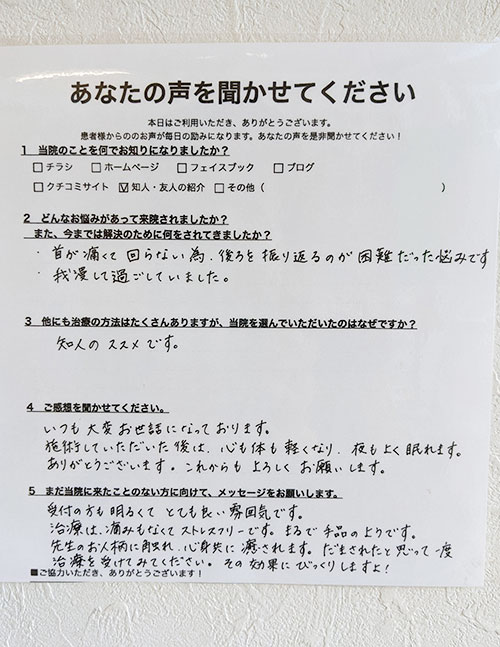 あなたの声を聞かせてください
本日はご利用いただき、ありがとうございます。
患者様からののお声が毎日の励みになります。あなたの声を是非聞かせてください！
1 当院のことを何でお知りになりましたか？
□チラシ □ホームページ □フェイスブック □ブログ
□クチコミサイト ☑知人・友人の紹介 □その他（ ）
2 どんなお悩みがあって来院されましたか？
また、今までは解決のために何をされてきましたか？
・首が痛くて回らない為、後ろを振り返るのが困難だった悩みです
・我慢して過ごしていました。
3 他にも治療の方法はたくさんありますが、当院を選んでいただいたのはなぜですか？
知人のススメです。
4 ご感想を聞かせてください。
いつも大変お世話になっております。
施術していただいた後は、心も体も軽くなり、夜もよく眠れます。
ありがとうございます。これからもよろしくお願いします。
5 まだ当院に来たことのない方に向けて、メッセージをお願いします。
受付の方も明るくてとても良い雰囲気です。
治療は、痛みもなくてストレスフリーです。まるで手品のようです。
先生のお人柄に魅され、心身共に癒されます。だまされたと思って一度
治療を受けてみてください。その効果にびっくりしますよ！
■ご協力いただき、ありがとうございます！